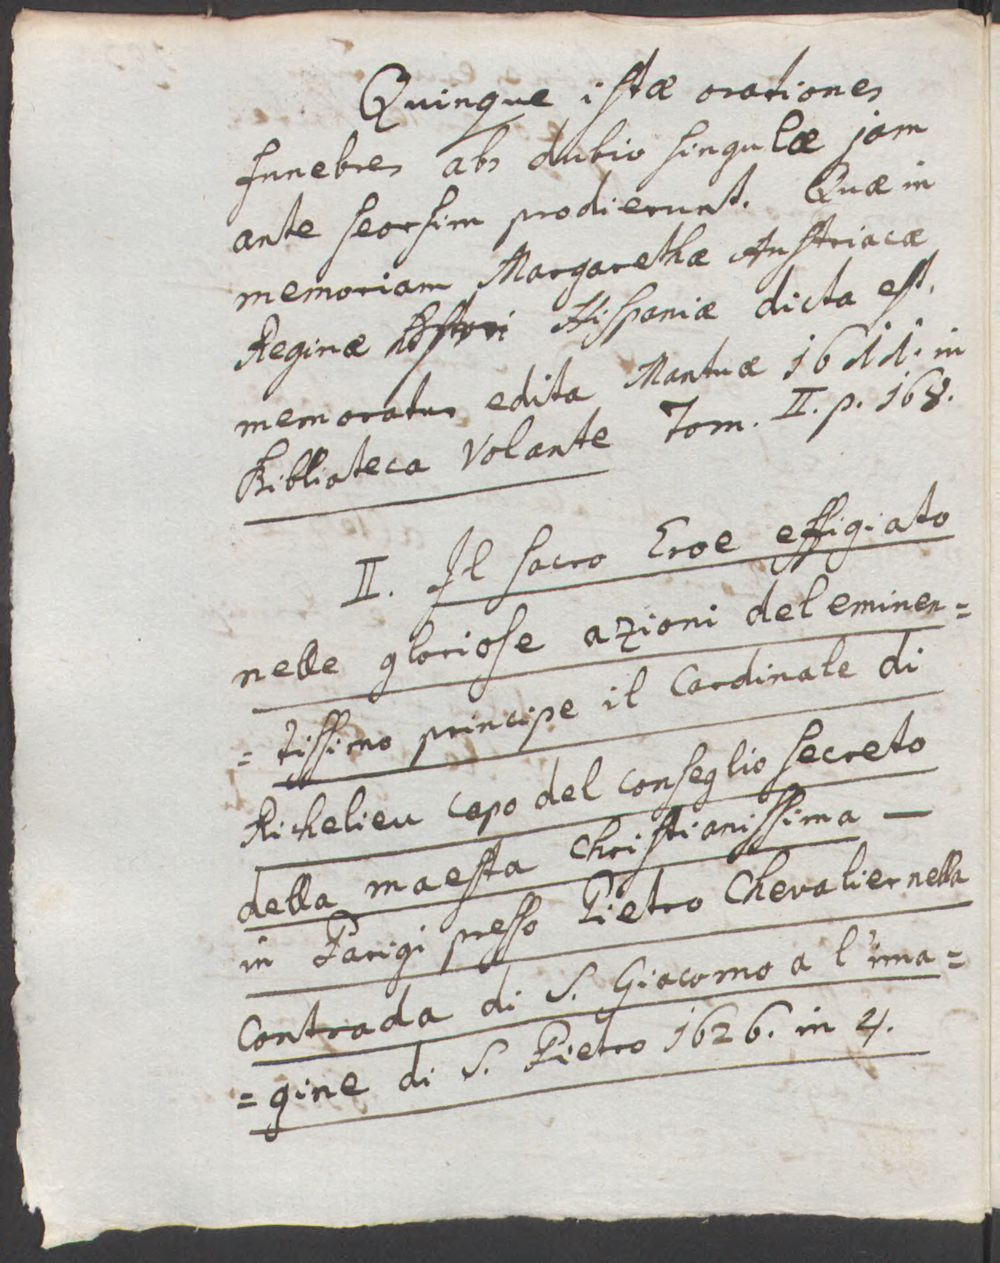 Quinque istæ orationes
funebres abs dubio singulæ jam
ante seorsim prodierunt. Quæ in
memoriam Margarethæ Austriacæ
Reginæ Hispaniæ dicta est,
memoratur edita Mantuæ 1611. in
Biblioteca Volante Tom. II. p. 168.
II. Il sacro Eroe effigiato
nelle gloriose azioni del eminen=
=tissimo principe il Cardinale di
Richelieu capo del conseglio secreto
della maesta Christianissima —
in Parigi presso Pietro Chevalier nella
Contrada di S. Giacomo a l'ima=
=gine di S. Pietro 1626. in 4.